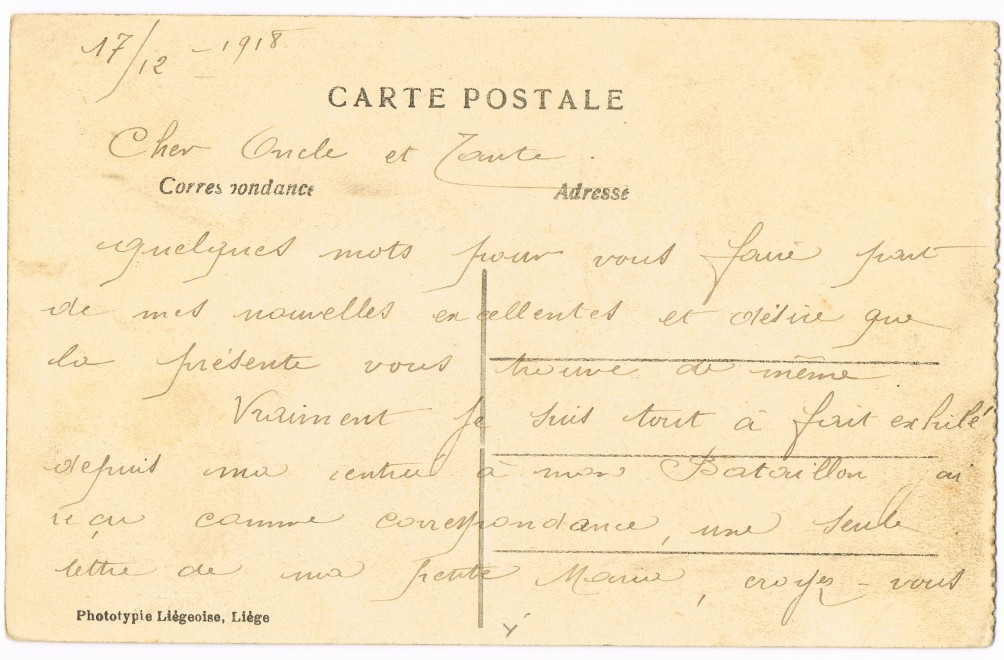 17/12 - 1918
CARTE POSTALE
Cher Oncle et Tante.
Correspondance Adresse
quelques mots pour vous faire part
de mes nouvelles excellentes et désire que
la présente vous trouve de même.
Vraiment je suis tout à fait exhilé
depuis ma rentrée à mon Bataillon, ai
reçu comme correspondance, une seule
lettre de ma petite Maria, croyez-vous
Phototypie Liégeoise, Liége